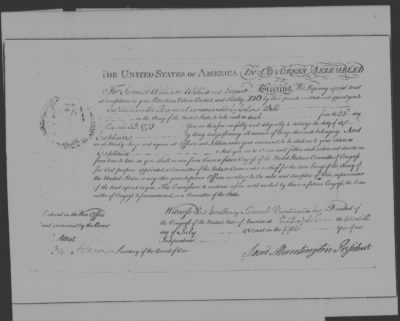 THE UNITED STATES OF AMERICA IN CONGRESS ASSEMBLED
TO Greeting, We reposing especial trust
and confidence in your Patriotism, Valour, Conduct, and Fidelity, DO by these presents constitute and appoint you to be
in the Army of the United States, to take rank as such from the 25th day
of 1778 You are therefore carefully and diligently to discharge the duty of
Captain by doing and performing all manner of things thereunto belonging. And
we strictly charge and require all Officers and Soldiers under your command, to be obedient to your orders as
Captain And you are to observe and follow such orders and directions
from time to time as you shall receive from this or a future Congress of the United States, or Committee of Congress
for that purpose appointed, a Committee of the States, or Commander in chief for the time being of the Army of the
United States, or any other your superior Officer, according to the rules and discipline of War, in pursuance
of the trust reposed in you. This Commission to continue in force until revoked by this or a future Congress, the Committee
of Congress before mentioned, or a Committee of the States.
Entered in the War Office
and examined by the Board
Attest
Secretary of the Board of War
Witness His Excellency Samuel Huntington Esq. President of
the Congress of the United States of America at Philadelphia the
day of July and in the fifth Year of our
Independence
Saml Huntington President